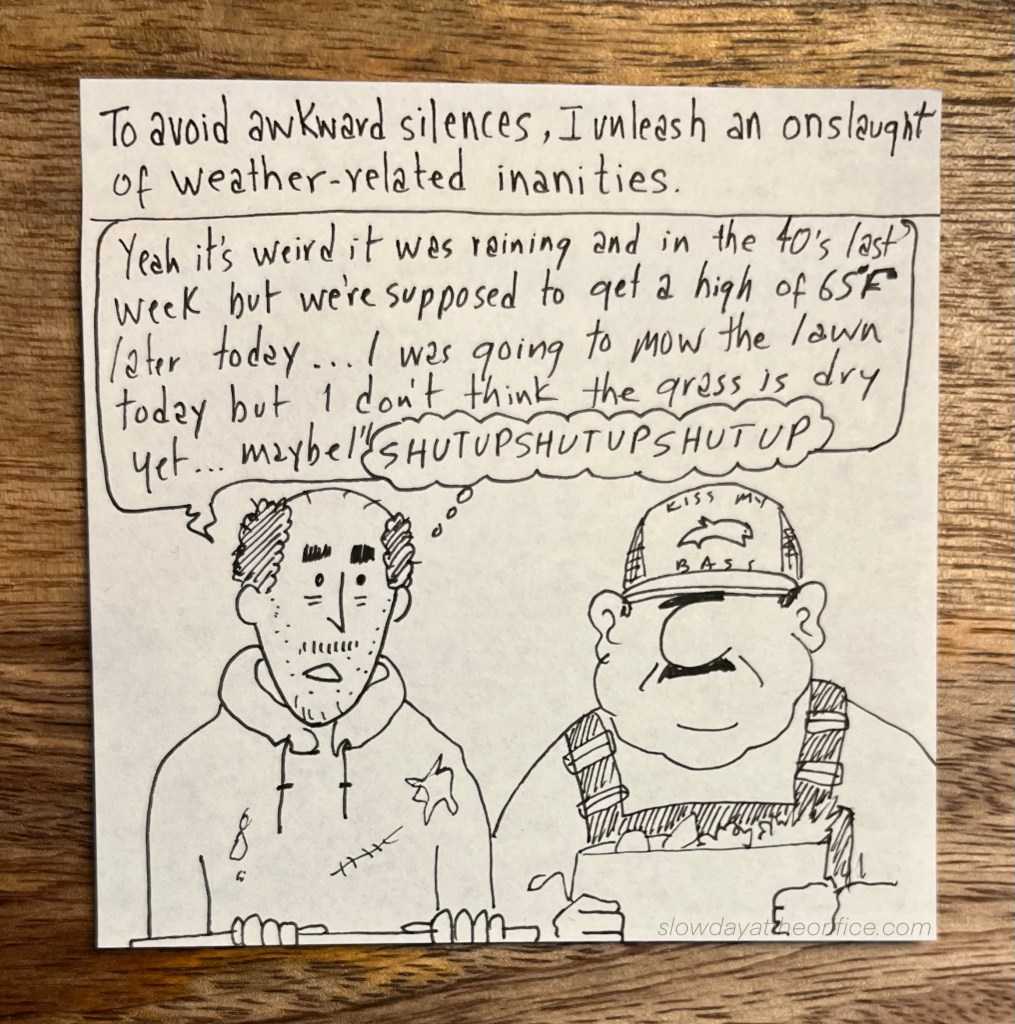 To avoid awkward silences, I unleash an onslaught
of weather-related inanities.
Yeah it's weird it was raining and in the 40's last
week but we're supposed to get a high of 65°F
later today... I was going to mow the lawn
today but I don't think the grass is dry
yet... maybe I'll
SHUTUPSHUTUPSHUTUP
KISS MY
BASS
slowdayattheoffice.com